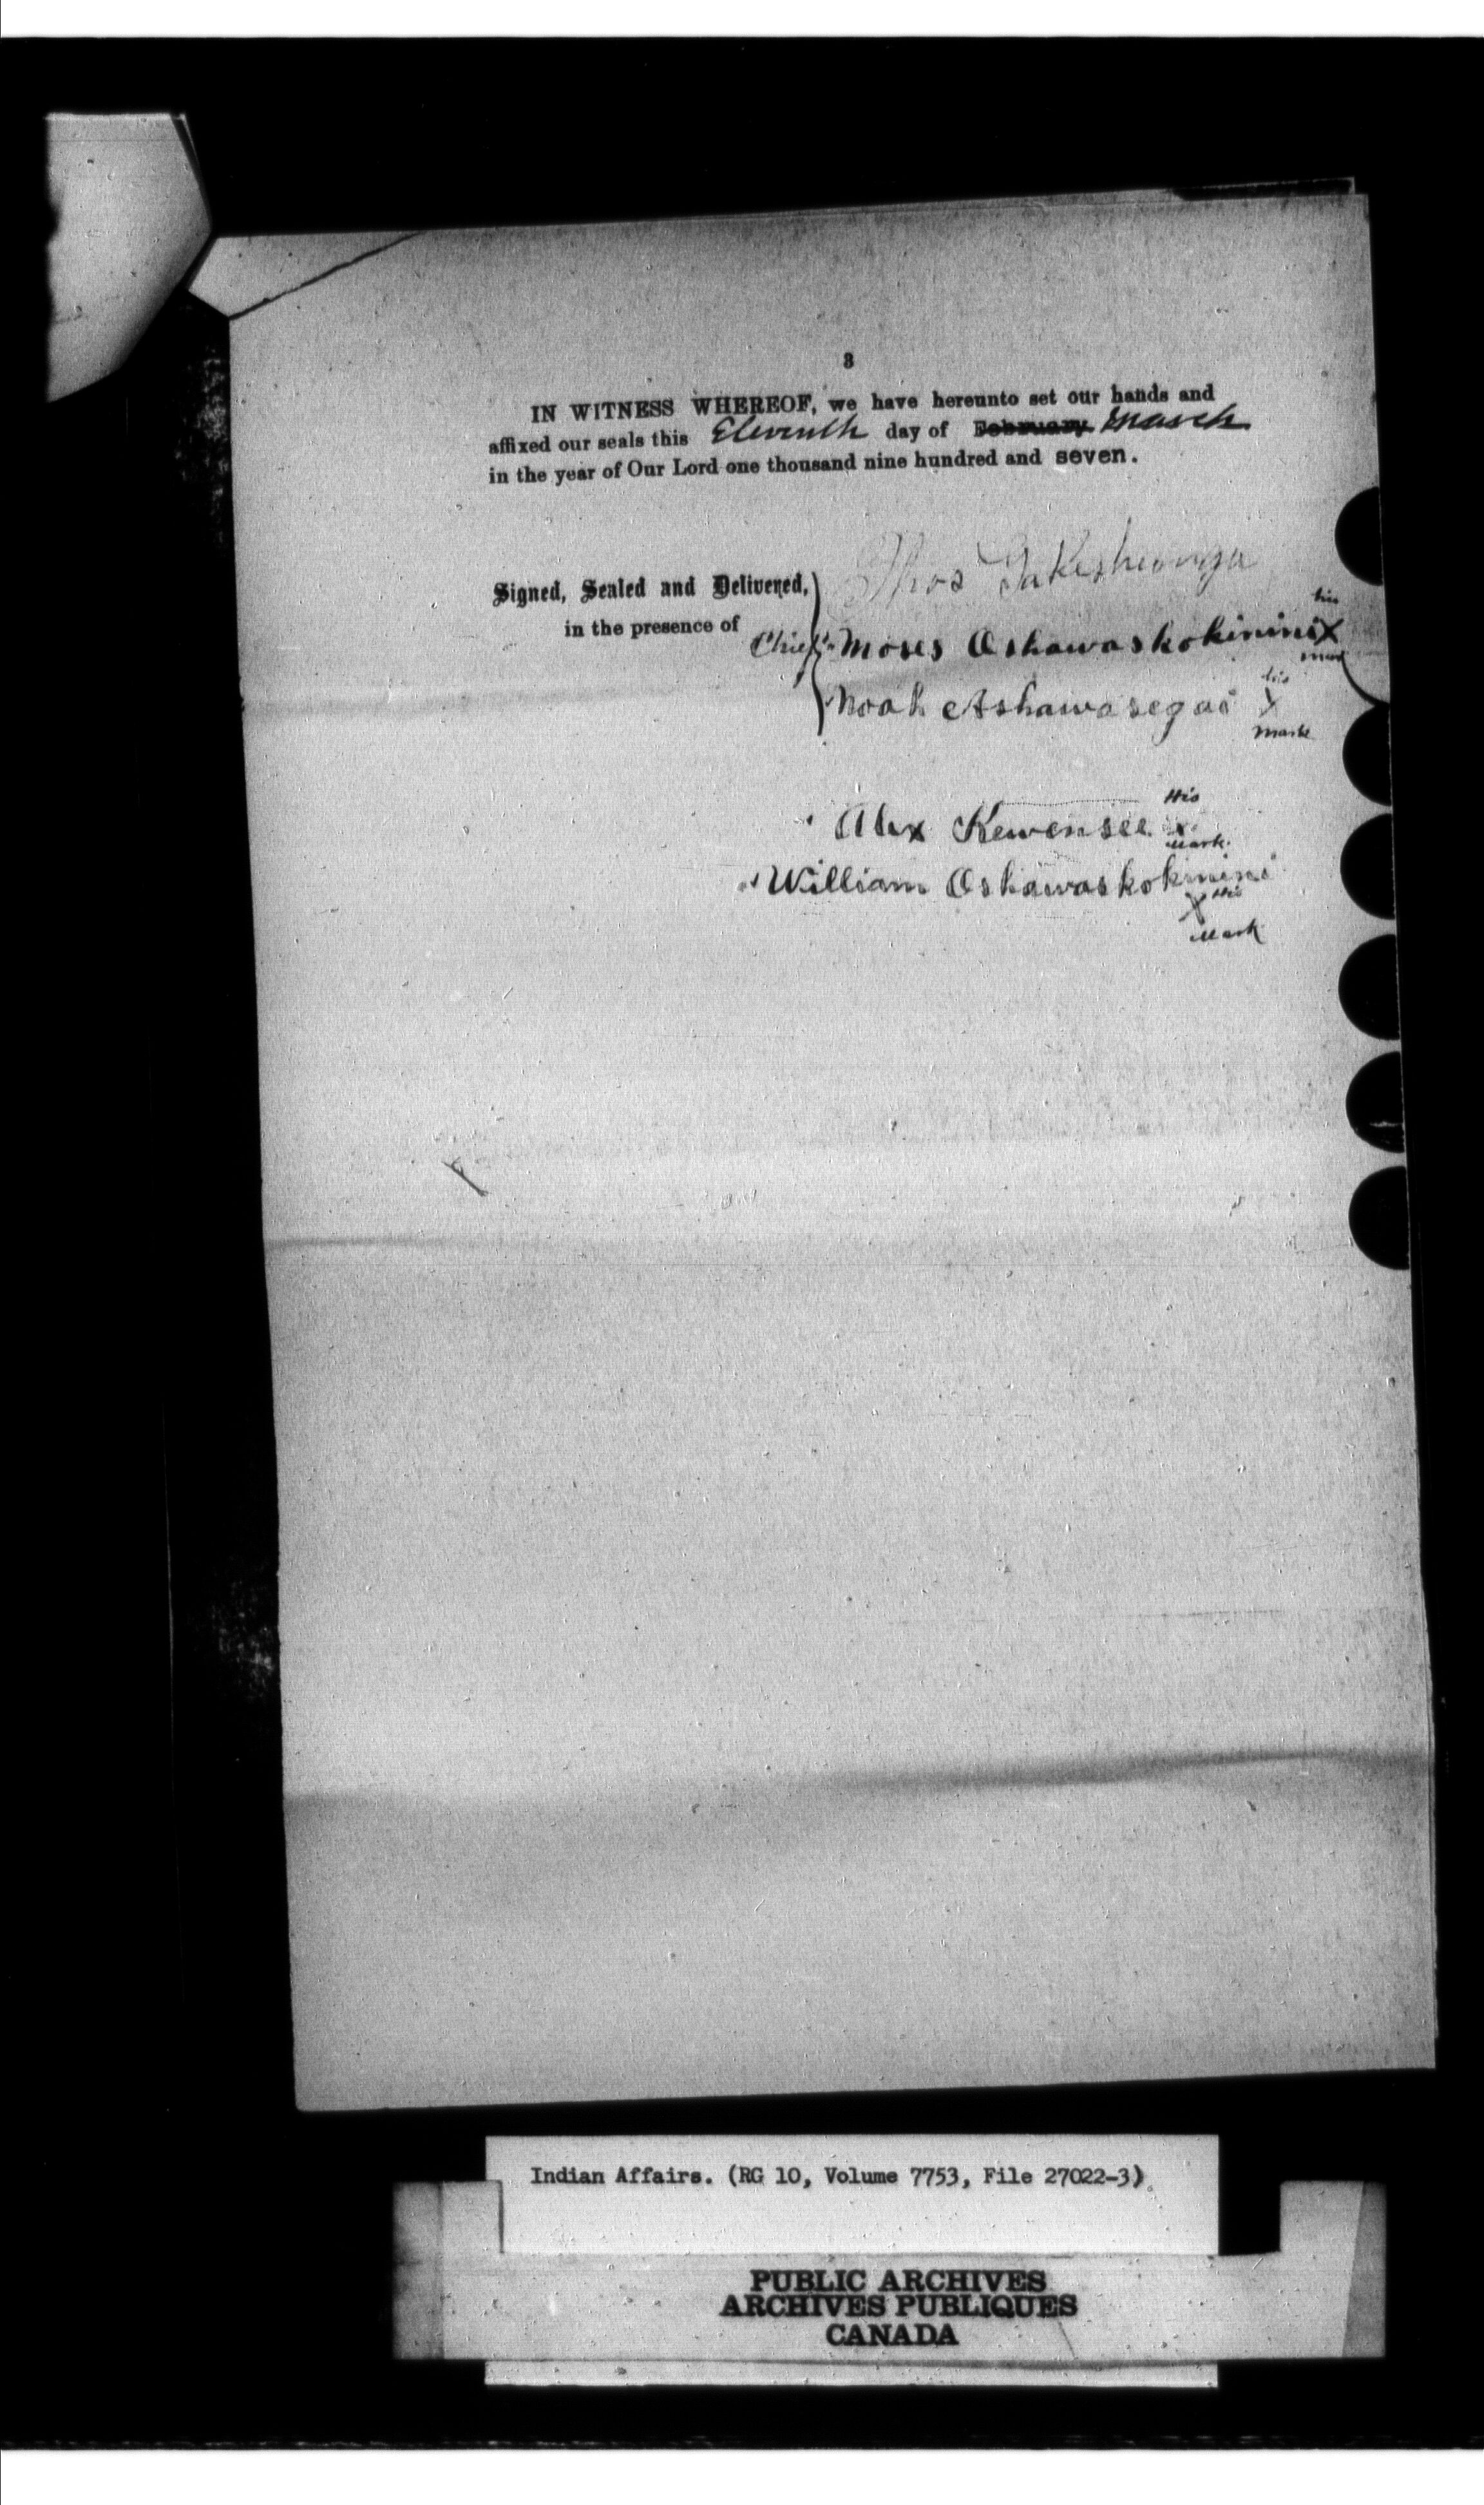 3
IN WITNESS WHEREOF, we have hereunto set our hands and
affixed our seals this Eleventh day of February March
in the year of Our Lord one thousand nine hundred and seven.
Thos
Signed, Sealed and Delivered,
in the presence of
his
Chief Moses Oshawaskokinini X
mark
his
Noah Ashawasegai X
mark
His
Alex Kewensee x
Mark
William Oshawaskokinini
X His
Mark
Indian Affairs. (RG 10, Volume 7753, File 27022-3)
PUBLIC ARCHIVES
ARCHIVES PUBLIQUES
CANADA